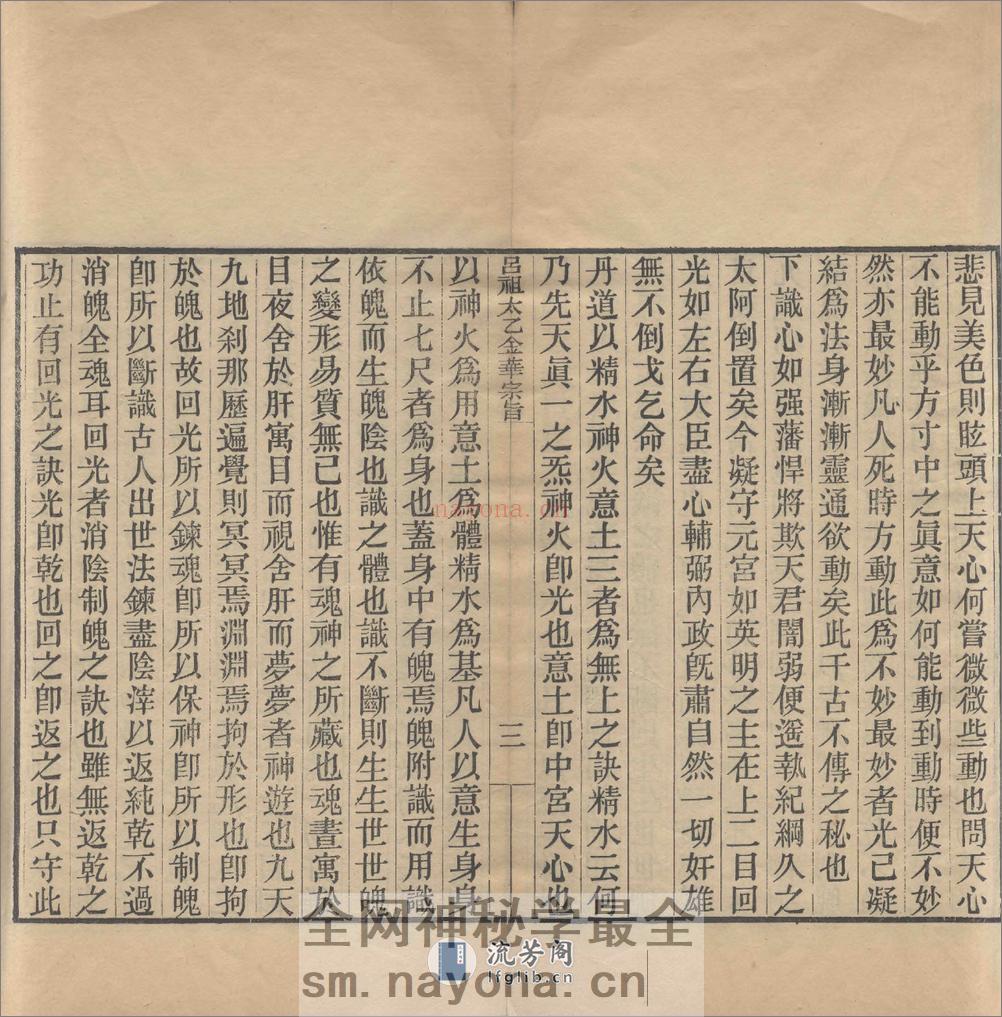 悲見美色則眩頭上天心何嘗微微些動也問天心
不能動乎方寸中之眞意如何能動到動時便不妙
然亦最妙凡人死時方動此爲不妙最妙者光已凝
結爲法身漸漸靈通欲動矣此千古不傳之秘也
下識心如强藩悍將欺天君闇弱便遥執紀綱久之
太阿倒置矣今凝守元宮如英明之主在上二目回
光如左右大臣盡心輔弼內政旣肅自然一切奸雄
無不倒戈乞命矣
丹道以精水神火意土三者爲無上之訣精水云何
乃先天眞一之炁神火卽光也意土卽中宮天心也
呂祖太乙金華宗旨
三
以神火爲用意土爲體精水爲基凡人以意生身身
不止七尺者爲身也蓋身中有魄焉魄附識而用識
依魄而生魄陰也識之體也識不斷則生生世世魄
之變形易質無已也惟有魂神之所藏也魂晝寓於
目夜舍於肝寓目而視舍肝而夢夢者神遊也九天
九地刹那歷遍覺則冥冥焉淵淵焉拘於形也卽拘
於魄也故回光所以鍊魂卽所以保神卽所以制魄
卽所以斷識古人出世法鍊盡陰滓以返純乾不過
消魄全魂耳回光者消陰制魄之訣也雖無返乾之
功止有回光之訣光卽乾也回之卽返之也只守此
nayona.cn
全网神秘学最全
流芳阁
lfglib.cn
sm.nayona.cn